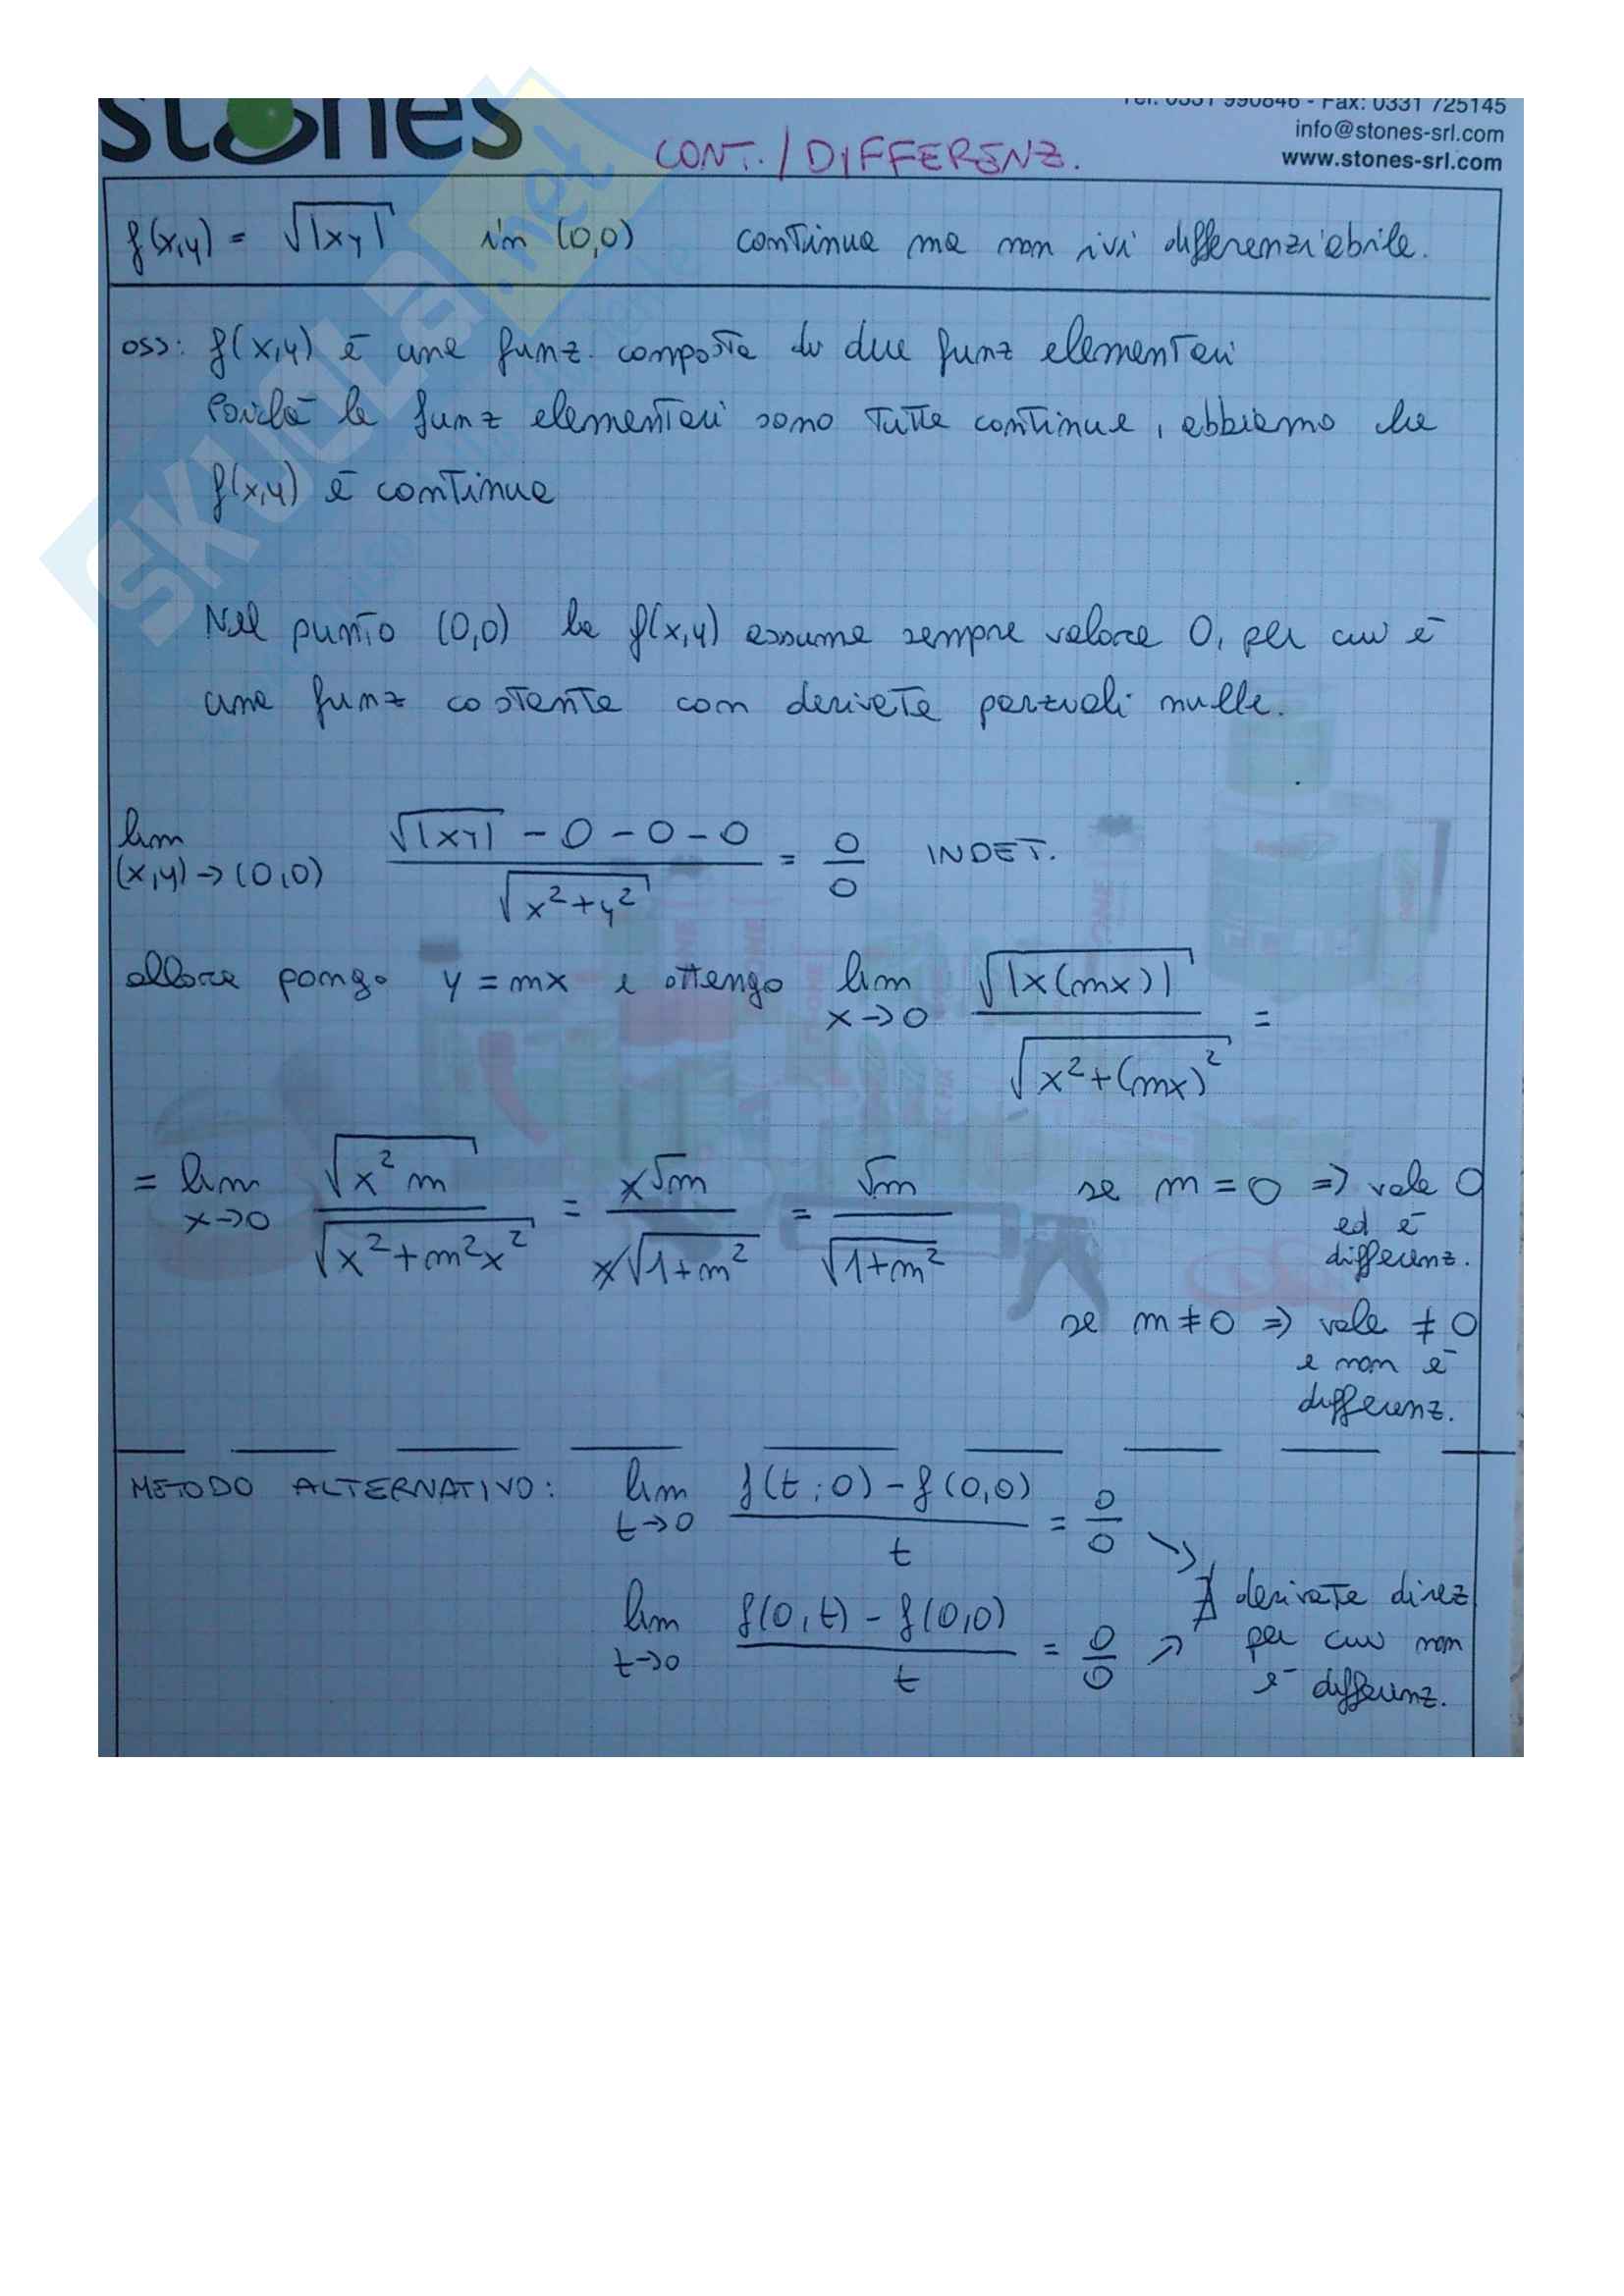 stones
Tel. 0331 990846 - Fax: 0331 725145
info@stones-srl.com
www.stones-srl.com
CONT. / DIFFERENZ.
f(x,y) = √|xy| in (0,0) continua ma non ivi differenziabile.
oss: f(x,y) è una funz. composta di due funz elementari
Poiché le funz elementari sono tutte continue, abbiamo che
f(x,y) è continua
Nel punto (0,0) la f(x,y) assume sempre valore 0, per cui è
una funz costante con derivate parziali nulle.
lim (x,y)→(0,0) (√|xy| - 0 - 0 - 0) / √(x²+y²) = 0/0 INDET.
allora pongo y = mx e ottengo lim x→0 √|x(mx)| / √(x²+(mx)²) =
= lim x→0 √(x²m) / √(x²+m²x²) = x√m / x√(1+m²) = √m / √(1+m²) se m = 0 ⇒ vale 0
ed è
differenz.
se m ≠ 0 ⇒ vale ≠ 0
e non è
differenz.
METODO ALTERNATIVO: lim t→0 (f(t;0) - f(0,0)) / t = 0/0 ↘
lim t→0 (f(0,t) - f(0,0)) / t = 0/0 ↗
∄ derivate direz
per cui non
è differenz.
SKUOLA.net